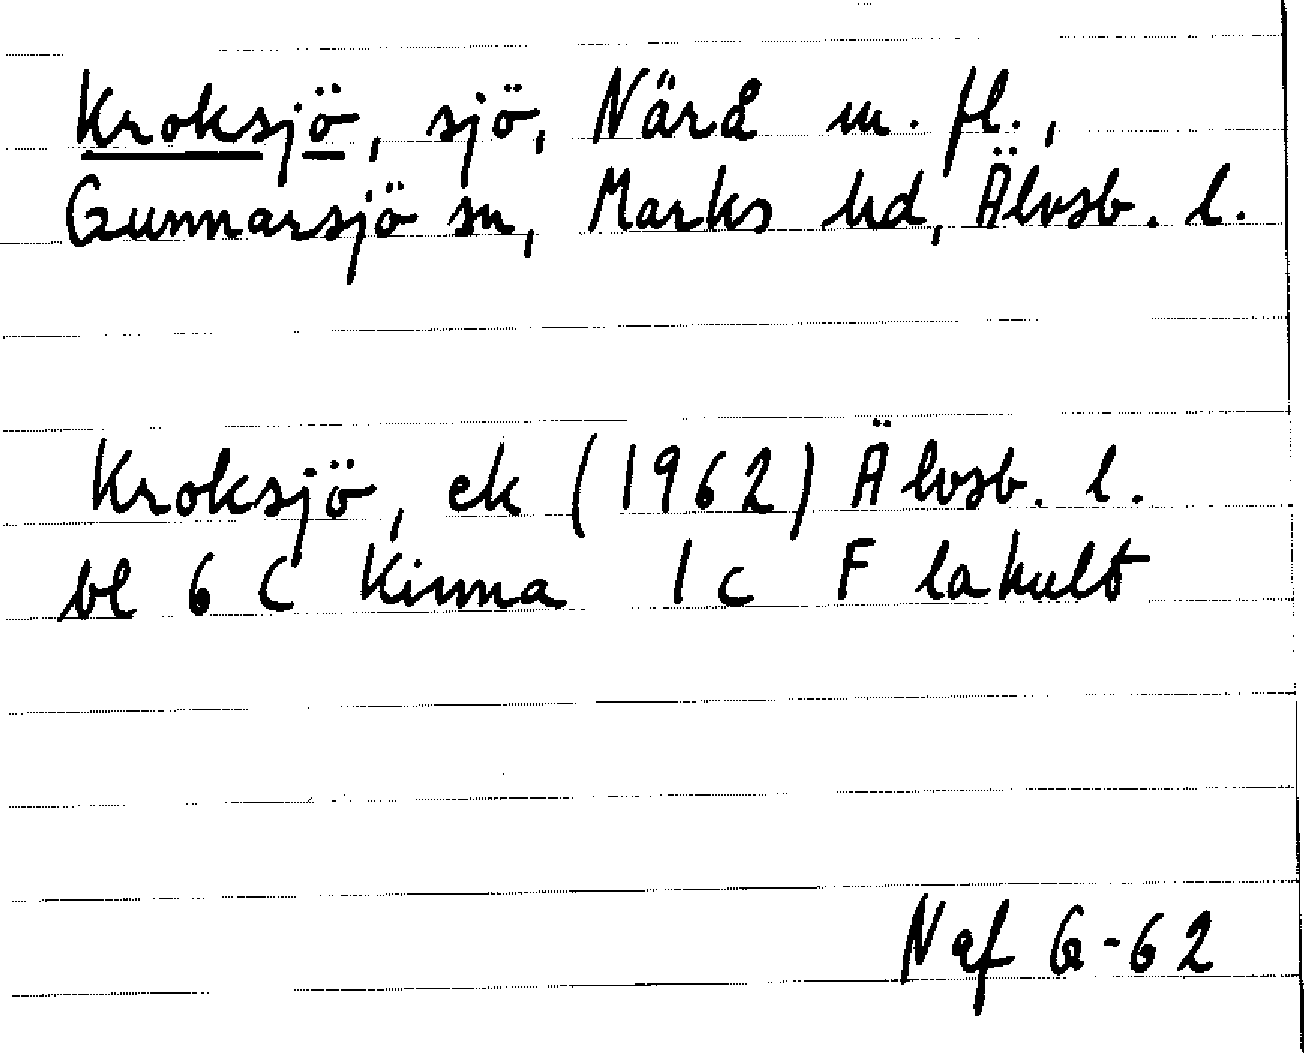 Kroksjö, sjö, Närå m. fl.,
Gunnarsjö sn, Marks hd, Älvsb. l.
Kroksjö, ek (1962) Älvsb. l.
bl 6 C Kinna 1 c Flahult
Naf G-62